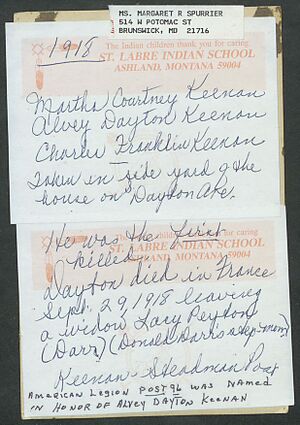 MS. MARGARET R SPURRIER
514 W POTOMAC ST
BRUNSWICK, MD 21716
1918
The Indian children thank you for caring.
ST. LABRE INDIAN SCHOOL
ASHLAND, MONTANA 59004
Martha Courtney Keenan
Alvey Dayton Keenan
Charles Franklin Keenan
Taken in side yard of the
house on Dayton Ave.
He was the first
killed
ST. LABRE INDIAN SCHOOL
ASHLAND, MONTANA 59004
Dayton died in France
Sept. 29, 1918 leaving
a widow Lacy Peyton
(Darr) (Donald Darr's step-mom)
Keenan - Steadman Post
AMERICAN LEGION POST 96 WAS NAMED
IN HONOR OF ALVEY DAYTON KEENAN